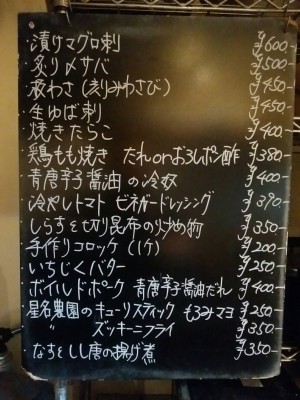 ・漬けマグロ刺 ¥600
・炙り〆サバ ¥500
・板わさ(刻みわさび) ¥450
・生ゆば刺 ¥450
・焼きたらこ ¥400
・鶏もも焼き たれorおろしポン酢 ¥380
・青唐辛子醤油の冷奴 ¥400
・冷やしトマト ビネガードレッシング ¥390
・しらすと切り昆布の炒め物 ¥350
・手作りコロッケ(1ケ) ¥200
・いちじくバター ¥250
・ボイルドポーク 青唐辛子醤油だれ ¥400
・星名農園のキューリスティック もろみマヨ ¥250
・ 〃 ズッキーニフライ ¥350
・なすとしし唐の揚げ煮 ¥350